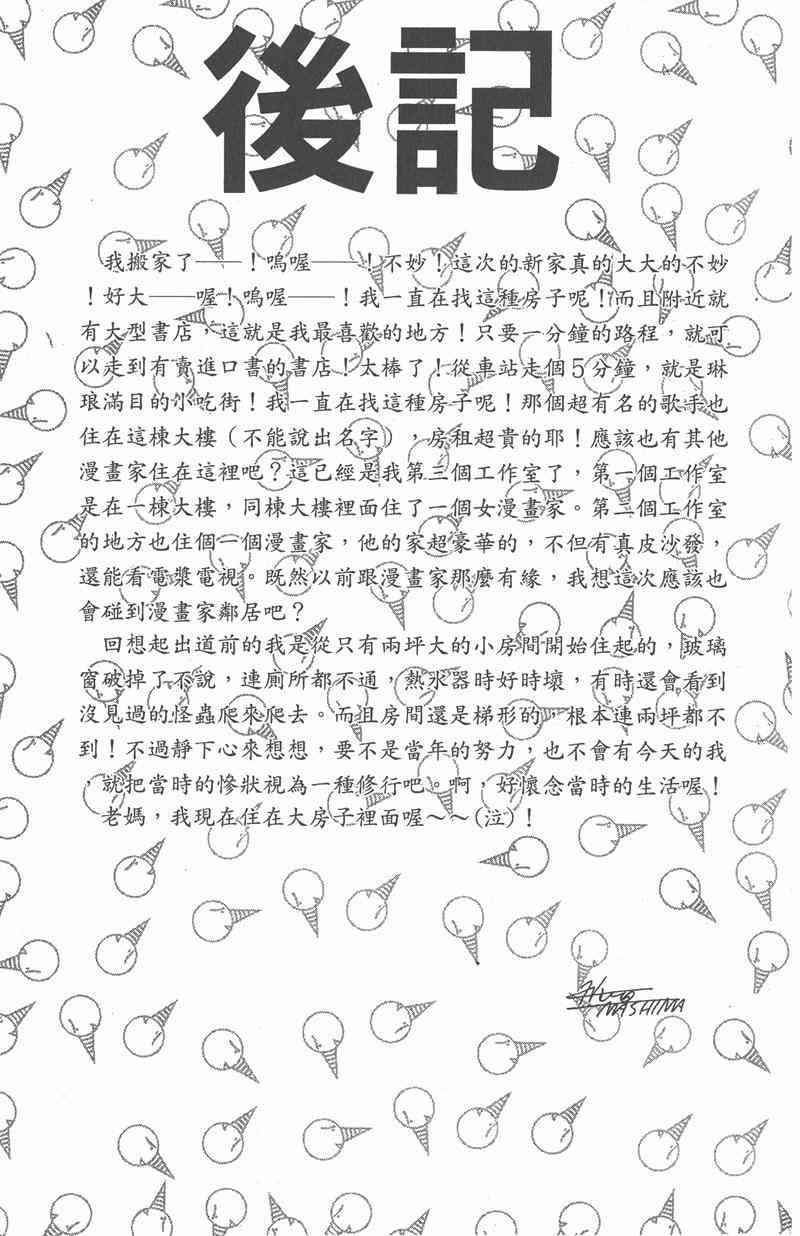 後記
我搬家了——！嗚喔——！不妙！這次的新家真的大大的不妙
！好大——喔！嗚喔——！我一直在找這種房子呢！而且附近就
有大型書店，這就是我最喜歡的地方！只要一分鐘的路程，就可
以走到有賣進口書的書店！太棒了！從車站走個5分鐘，就是琳
琅滿目的小吃街！我一直在找這種房子呢！那個超有名的歌手也
住在這棟大樓（不能說出名字），房租超貴的耶！應該也有其他
漫畫家住在這裡吧？這已經是我第三個工作室了，第一個工作室
是在一棟大樓，同棟大樓裡面住了一個女漫畫家。第二個工作室
的地方也住個一個漫畫家，他的家超豪華的，不但有真皮沙發，
還能看電漿電視。既然以前跟漫畫家那麼有緣，我想這次應該也
會碰到漫畫家鄰居吧？
回想起出道前的我是從只有兩坪大的小房間開始住起的，玻璃
窗破掉了不說，連廁所都不通，熱水器時好時壞，有時還會看到
沒見過的怪蟲爬來爬去。而且房間還是梯形的，根本連兩坪都不
到！不過靜下心來想想，要不是當年的努力，也不會有今天的我
，就把當時的慘狀視為一種修行吧。啊，好懷念當時的生活喔！
老媽，我現在住在大房子裡面喔～～(泣)！
Hiro
MASHIMA